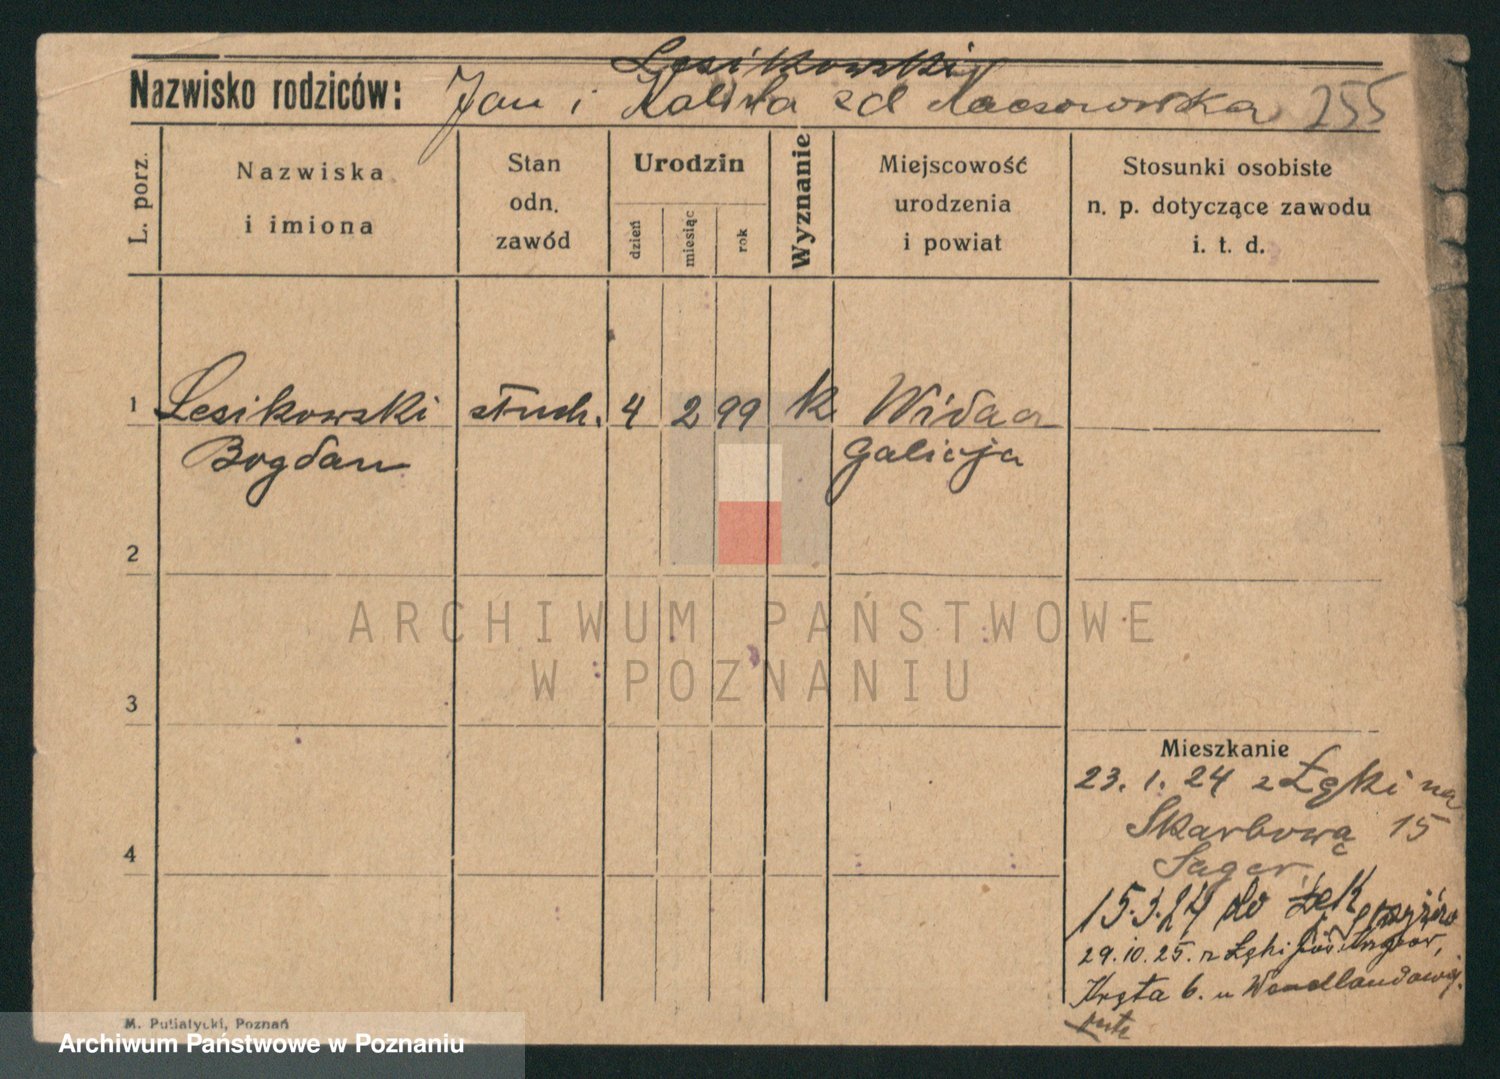 Lesikowski
Nazwisko rodziców: Jan i Kalista zd 255
L. porz.
Nazwiska i imiona
Stan odn. zawód
Urodzin
dzień
miesiąc
rok
Wyznanie
Miejscowość urodzenia i powiat
Stosunki osobiste n. p. dotyczące zawodu i. t. d.
1 Lesikowski słuch. 4 2 99 k
Bogdan Galicja
2
3
4
Mieszkanie
23. 1. 24 z Łęki na
Skarbową 15
Sager
15.3.24 do
29.10.25. z Łęki
Kręta 6. u Wendlandowej.
M. Putiatycki, Poznań
ARCHIWUM PAŃSTWOWE
W POZNANIU
Archiwum Państwowe w Poznaniu